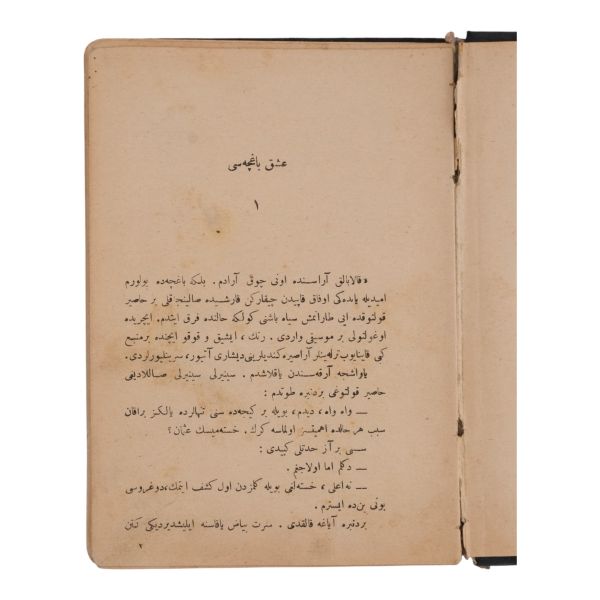 عشق باغچه‌سی
١
« قالابالق آراسنده اونی چوق آرادم . بلكه باغچه‌ده بولورم
امیدیله یانده‌كی اوفاق قاپیدن چیقاركن قارشیده صالینجقلی بر حاصیر
قولتوقده ایی طارانمش سیاه باشنی كولكه حالنده فرق ایتدم . ایچریده
اوغولتولی بر موسیقی واردی . رنك ، ایشیق و قوقو ایچنده بر منبع
كبی قاینایوب ترله‌ینلر آراصیره كندیلرینی دیشاری آتیور ، سرینلیورلردی .
یاواشجه آرقه‌سندن یاقلاشدم . سینیرلی سینیرلی صاللادیغی
حاصیر قولتوغی بردنبره طوتدم :
— واه واه ، دیدم ، بویله بر كیجه‌ده سنی تنهالرده یالكز براقان
سبب هر حالده اهمیتسز اولماسه كرك . خسته‌میسك عثمان ؟
سسی بر آز حدتلی كبیدی :
— دكلم اما اولاجغم .
— نه اعلی ، خسته‌لغی بویله كلمزدن اول كشف ایتمك ، دوغروسی
بونی بن‌ده ایسترم .
بردنبره آیاغه قالقدی . سرت بیاض یاقاسنه ایلیشدیردیكی كتن
٢